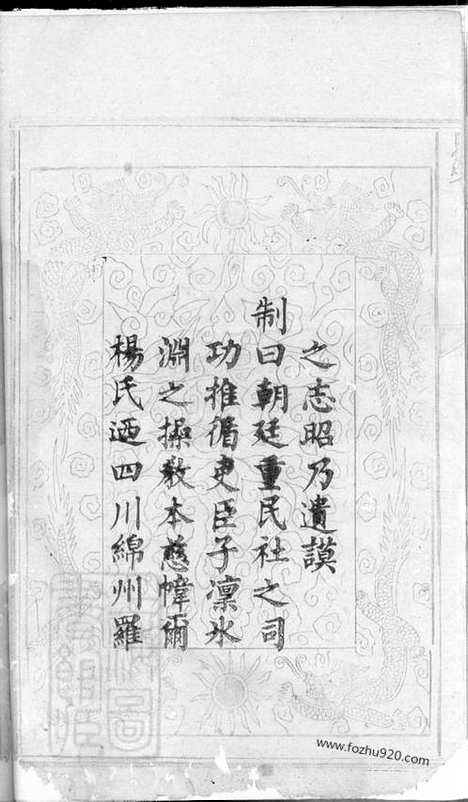 之志昭乃遺謨
制曰朝廷重民社之司
功推循吏臣子凜氷
淵之操敎本慈幃爾
楊氏迺四川綿州羅
www.fozhu920.com